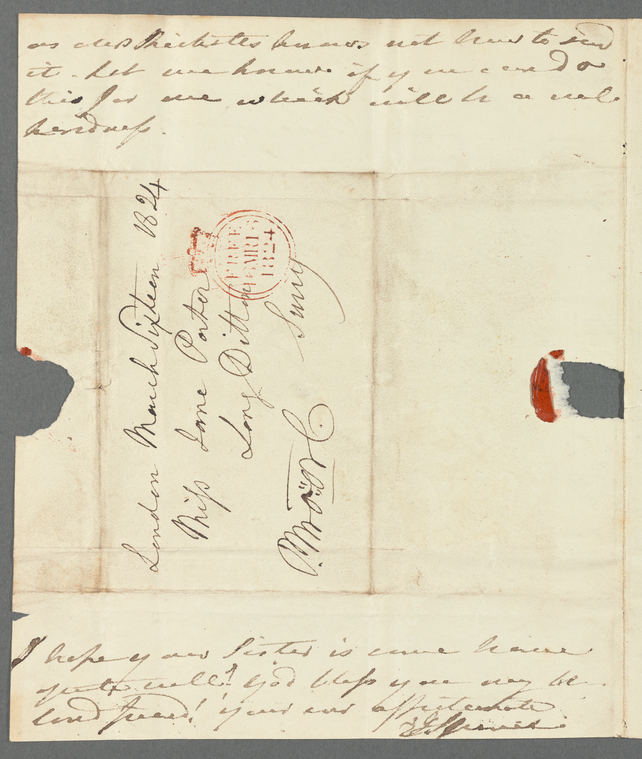 as Miss knows not how to send
it - Let me know if you can do
this for me which will be a real
kindness.
London March Sixteen 1824
Miss Jane Porter
Long Ditton
Surry
FREE
16 MR 16
1824
I hope your Sister is come home
quite well! God bless you my be-
loved friend! your ever affectionate